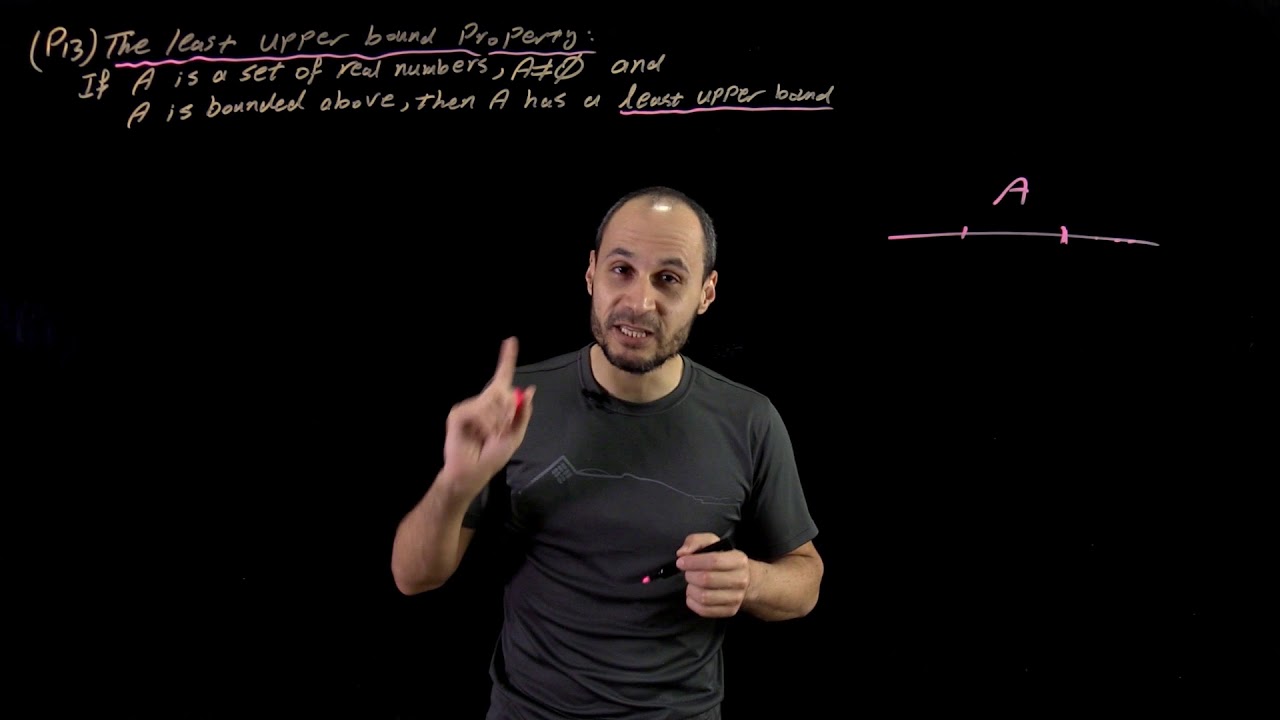 (P13) The least upper bound Property:
If A is a set of real numbers, A≠∅ and
A is bounded above, then A has a least upper bound
A